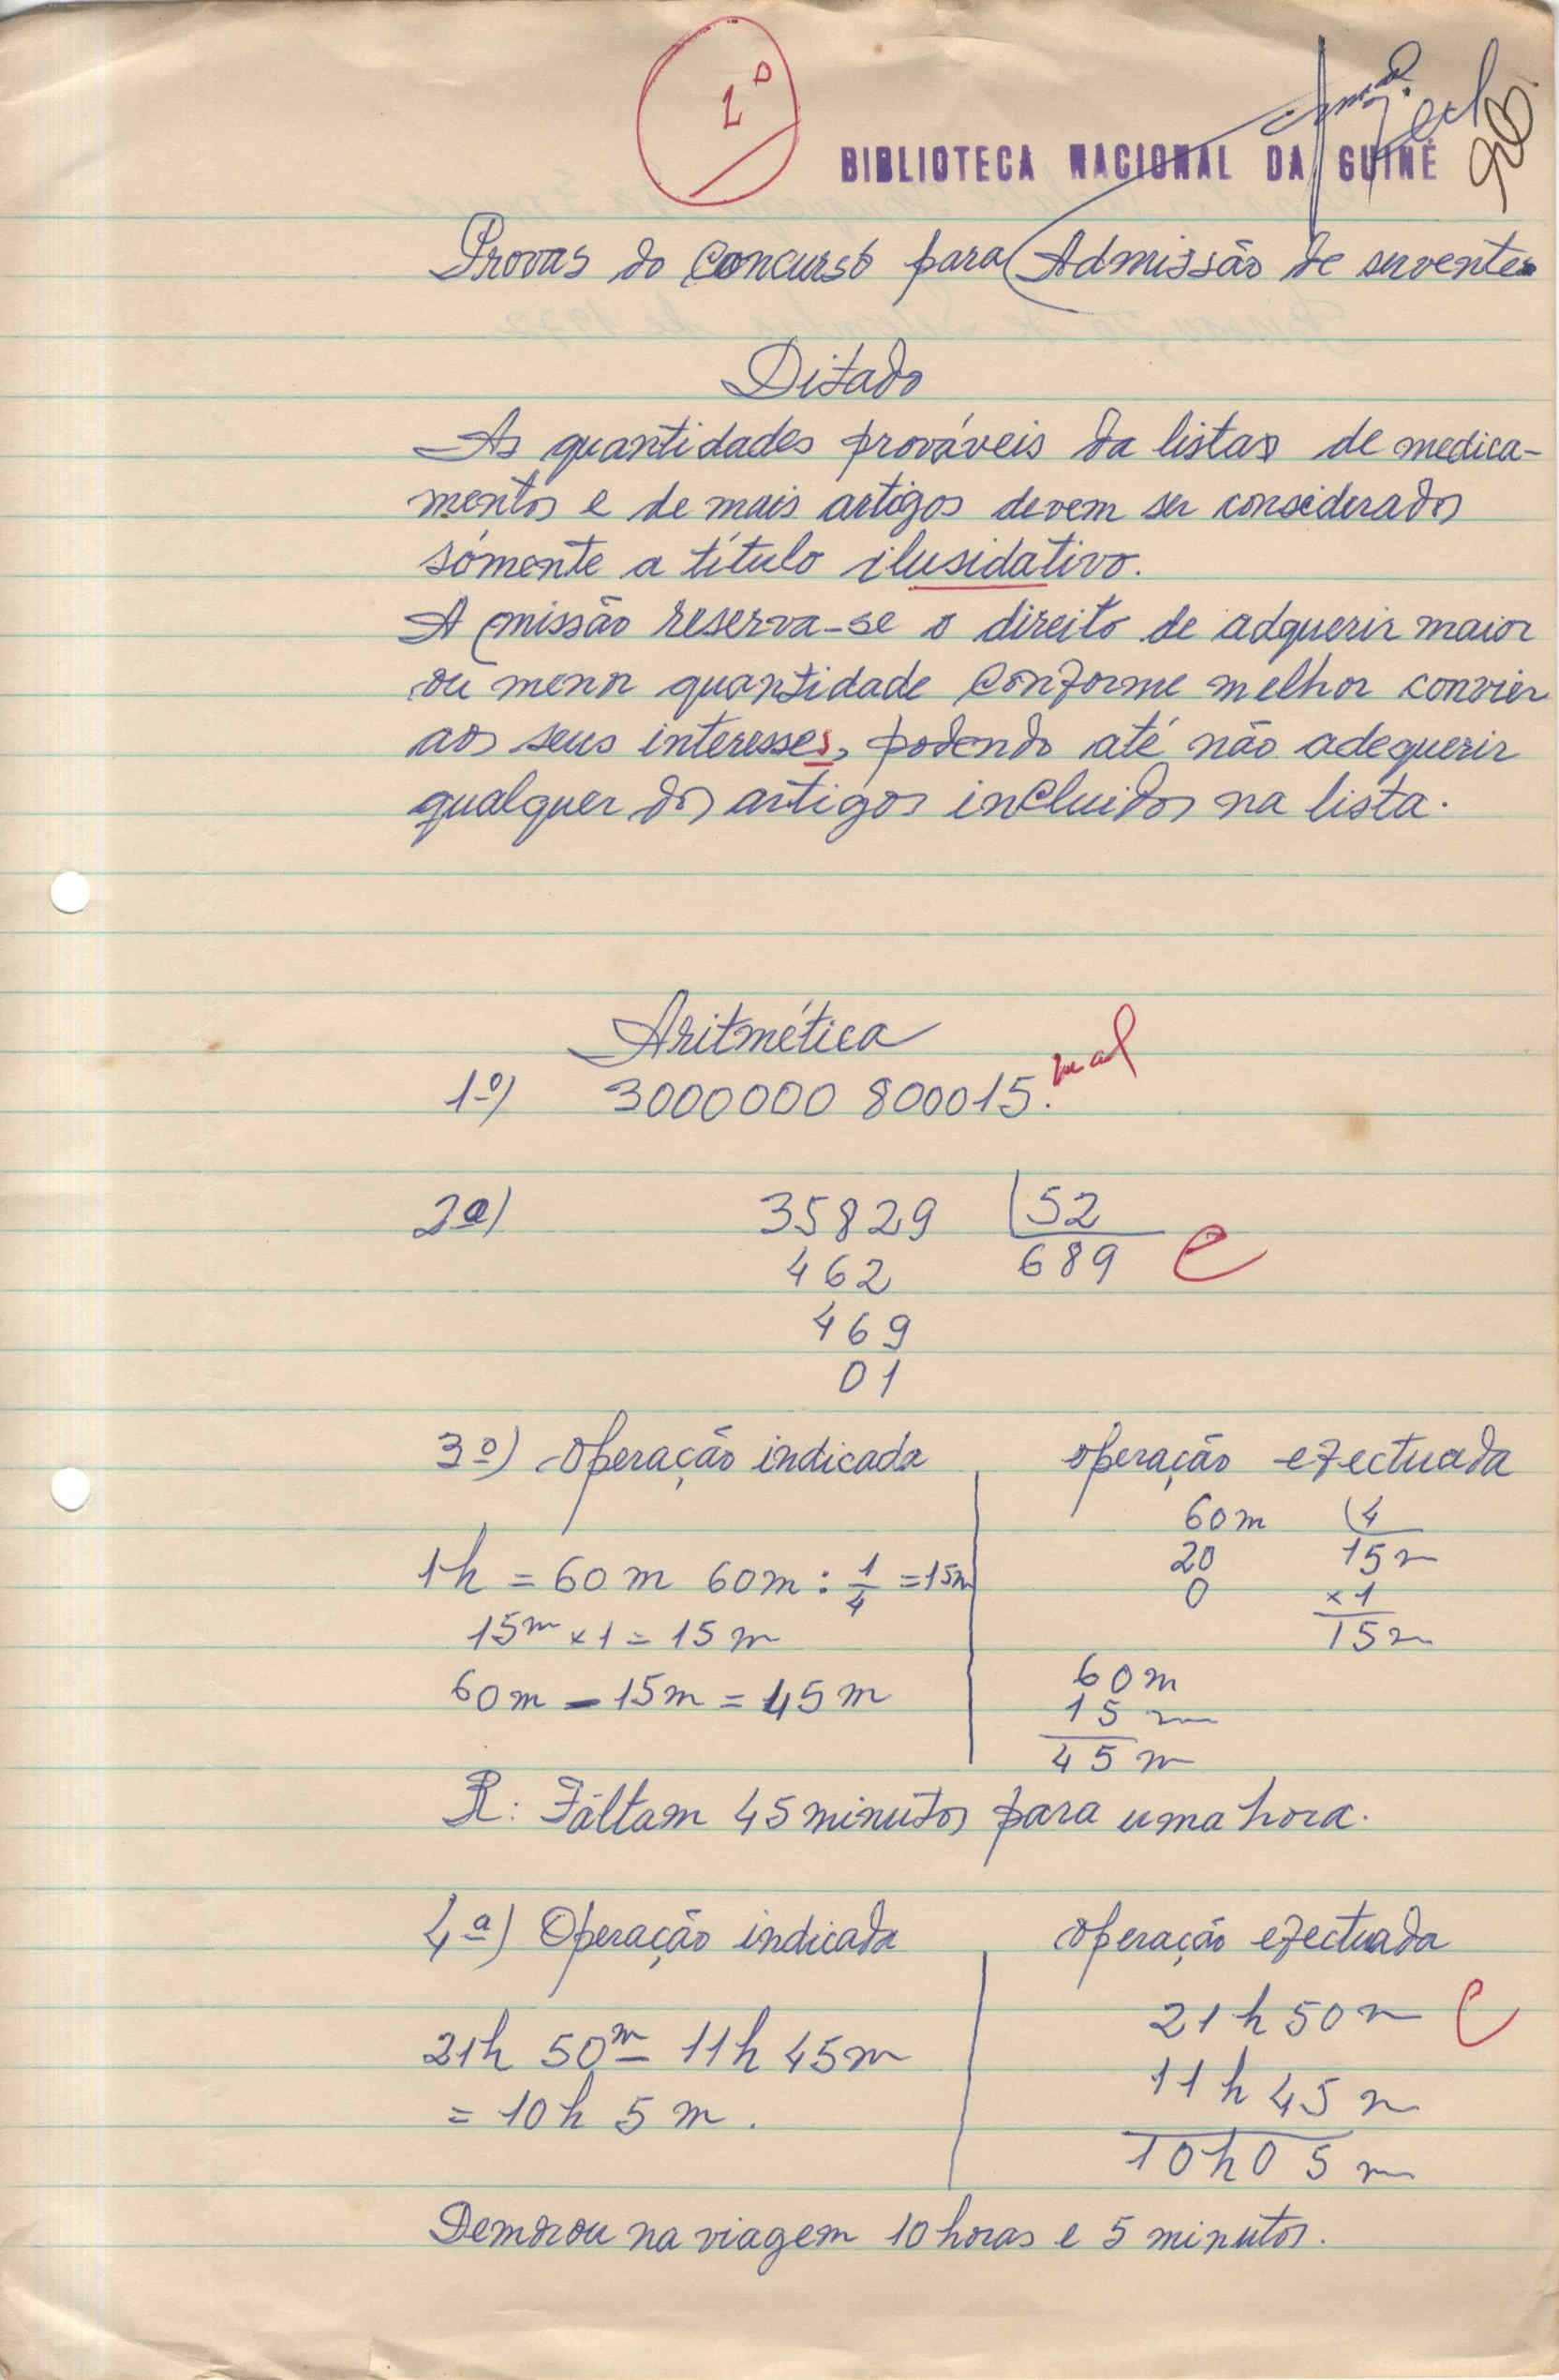 1º
BIBLIOTECA NACIONAL DA GUINÉ
Provas do Concurso para Admissão de serventes
Ditado
As quantidades prováveis da listas de medica-
mentos e de mais artigos devem ser considerados
sómente a título ilusidativo.
A missão reserva-se o direito de adquerir maior
ou menor quantidade conforme melhor convier
aos seus interesses, podendo até não adequerir
qualquer dos artigos incluidos na lista.
Aritmética
1º) 3000000 800015. mal
2ª) 35829 52
462 689 C
469
01
3º) Operação indicada operação efectuada
60m 4
1h = 60m 60m : 1/4 = 15m 20 15m
0 x1
15m x 1 = 15m 15m
60m - 15m = 45m 60m
15m
45m
R: Fáltam 45 minutos para uma hora.
4ª) Operação indicada operação efectuada
21h 50m C
21h 50m - 11h 45m 11h 45m
= 10h 5m. 10h05m
Demorou na viagem 10 horas e 5 minutos.